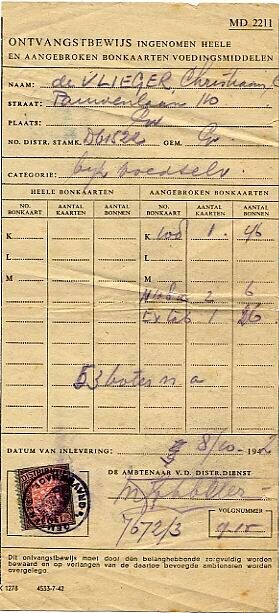 MD 2211
ONTVANGSTBEWIJS INGENOMEN HEELE
EN AANGEBROKEN BONKAARTEN VOEDINGSMIDDELEN
NAAM: de VLIEGER, Christiaan,
STRAAT: Pauwenlaan 10
PLAATS:
NO. DISTR. STAMK.: GEM.
CATEGORIE:
HEELE BONKAARTEN AANGEBROKEN BONKAARTEN
NO. BONKAART AANTAL KAARTEN AANTAL BONNEN NO. BONKAART AANTAL KAARTEN AANTAL BONNEN
K K 108 1 46
L L
M M
2 6
1 26
53
DATUM VAN INLEVERING: 8/10-1942
DE AMBTENAAR V.D. DISTR.DIENST
7672/3
VOLGNUMMER
Dit ontvangstbewijs moet door den belanghebbende zorgvuldig worden
bewaard en op verlangen van de daartoe bevoegde ambtenaren worden
overgelegd.
K 1278 4533-7-42